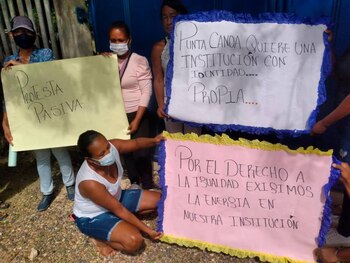 PROTESTA
PASIVA
PUNTA CANOA QUIERE UNA
INSTITUCIÓN CON
IDENTIDAD....
PROPIA...
POR EL DERECHO A
LA IGUALDAD EXIGIMOS
LA ENERGÍA EN
NUESTRA INSTITUCIÓN